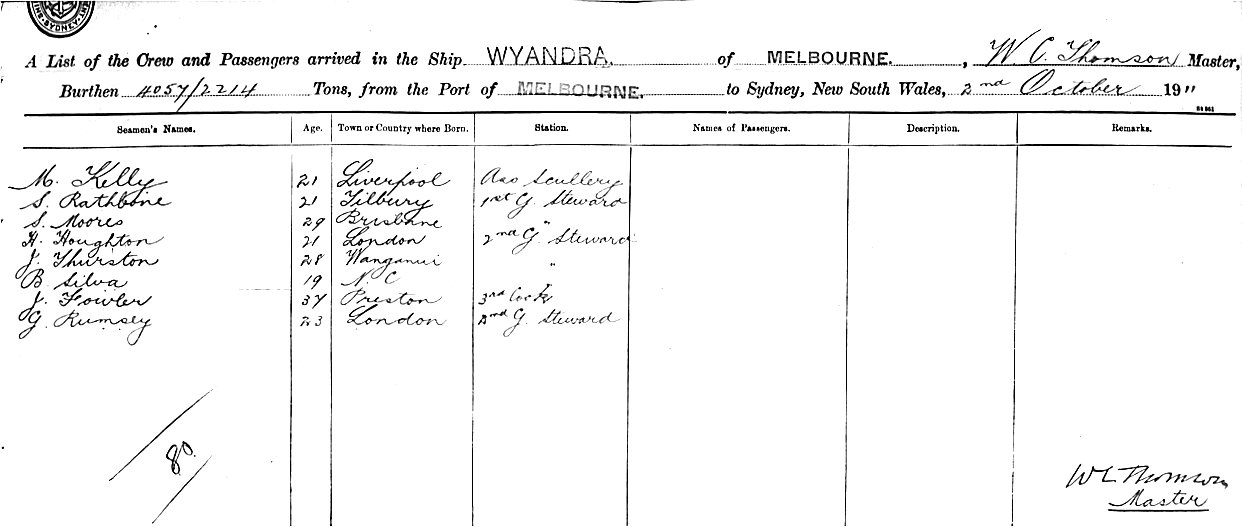 SYDNEY
A List of the Crew and Passengers arrived in the Ship WYANDRA. of MELBOURNE. , W C. Thomson Master,
Burthen 4057/2214 Tons, from the Port of MELBOURNE. to Sydney, New South Wales, 2nd October 19"
Seamen's Names. Age. Town or Country where Born. Station. Names of Passengers. Description. Remarks.
M. Kelly 21 Liverpool Scullery
S. Rathbone 21 Tilbury 1st G. Steward
S. Moores 29 Brisbane "
H. Houghton 21 London 2nd G. Steward
J. Thurston 28 Wanganui "
B Silva 19 N. C
J. Fowler 37 Preston 3rd Cook
G. Rumsey 23 London 2nd G. Steward
80
W C Thomson
Master